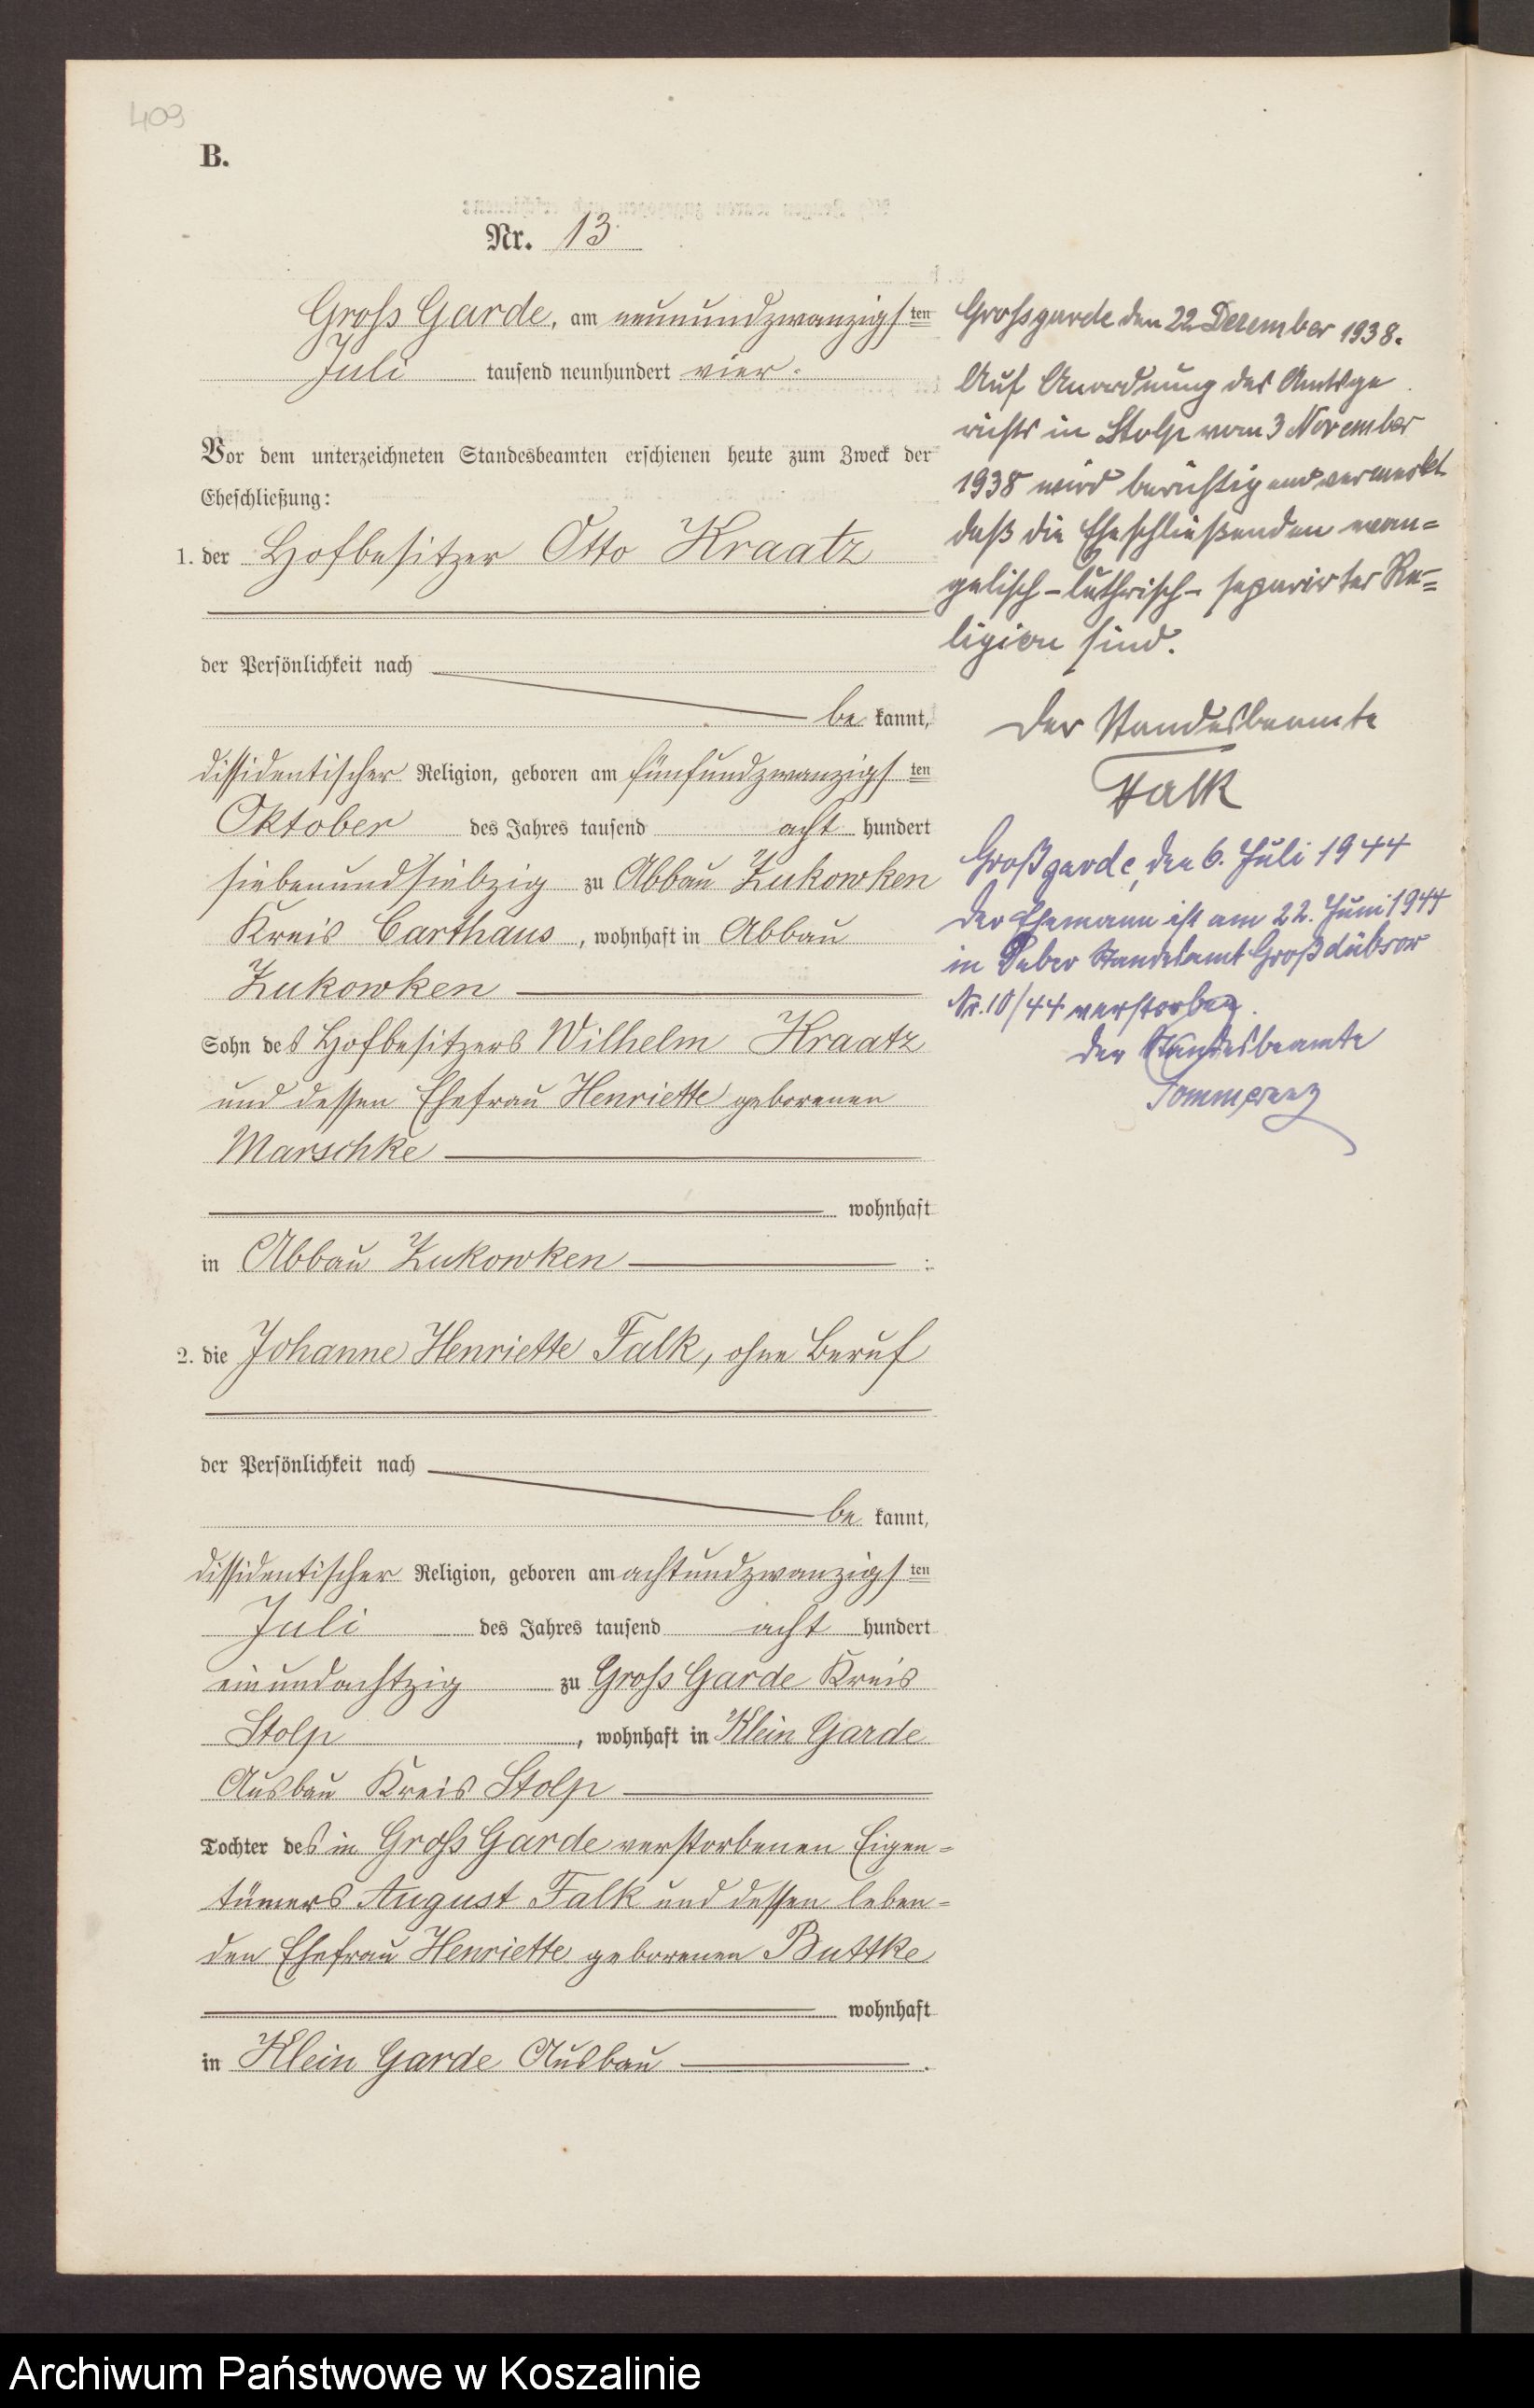 409
B.
Nr. 13.
Gross Garde, am neunundzwanzigsten
Juli tausend neunhundert vier.
Vor dem unterzeichneten Standesbeamten erschienen heute zum Zweck der
Eheschließung:
1. der Hofbesitzer Otto Kraatz
der Persönlichkeit nach
be kannt,
dissidentischer Religion, geboren am fünfundzwanzigsten
Oktober des Jahres tausend acht hundert
siebenundsiebzig zu Abbau Zukowken
Kreis Carthaus, wohnhaft in Abbau
Zukowken
Sohn des Hofbesitzers Wilhelm Kraatz
und dessen Ehefrau Henriette geborenen
Marschke
wohnhaft
in Abbau Zukowken ;
2. die Johanne Henriette Falk, ohne Beruf
der Persönlichkeit nach
be kannt,
dissidentischer Religion, geboren am achtundzwanzigsten
Juli des Jahres tausend acht hundert
einundachtzig zu Gross Garde Kreis
Stolp, wohnhaft in Klein Garde
Ausbau Kreis Stolp
Tochter des in Gross Garde verstorbenen Eigen=
tümers August Falk und dessen leben=
den Ehefrau Henriette geborenen Buttke
wohnhaft
in Klein Garde Ausbau .
Grossgarde den 22 Dezember 1938.
Auf Anordnung des Amtsge
richts in Stolp vom 3 November
1938 wird berichtigend vermerkt
daß die Eheschließenden evan=
gelisch-lutherisch-separirter Re=
ligion sind.
Der Standesbeamte
Falk
Großgarde, den 6. Juli 1944
Der Ehemann ist am 22. Juni 1944
in Standesamt Großdübsow
Nr. 10/44 verstorben.
Der Standesbeamte
Archiwum Państwowe w Koszalinie